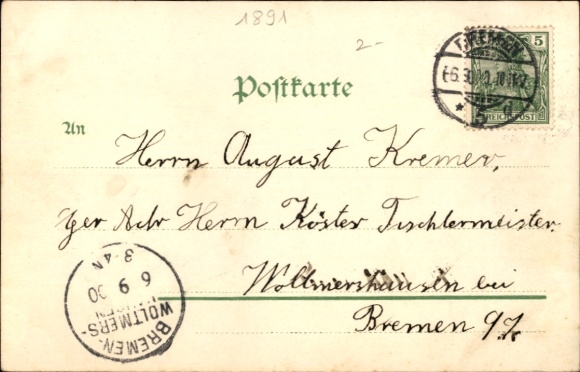 1891
2-
5
REICHSPOST
6.9.00
Postkarte
An
Herrn August Kremer,
per Adr Herrn Köster Tischlermeister.
Woltmershausen bei
Bremen 97.
3-4N
6 9 00
BREMEN-
WOLTMERS-
HAUSEN